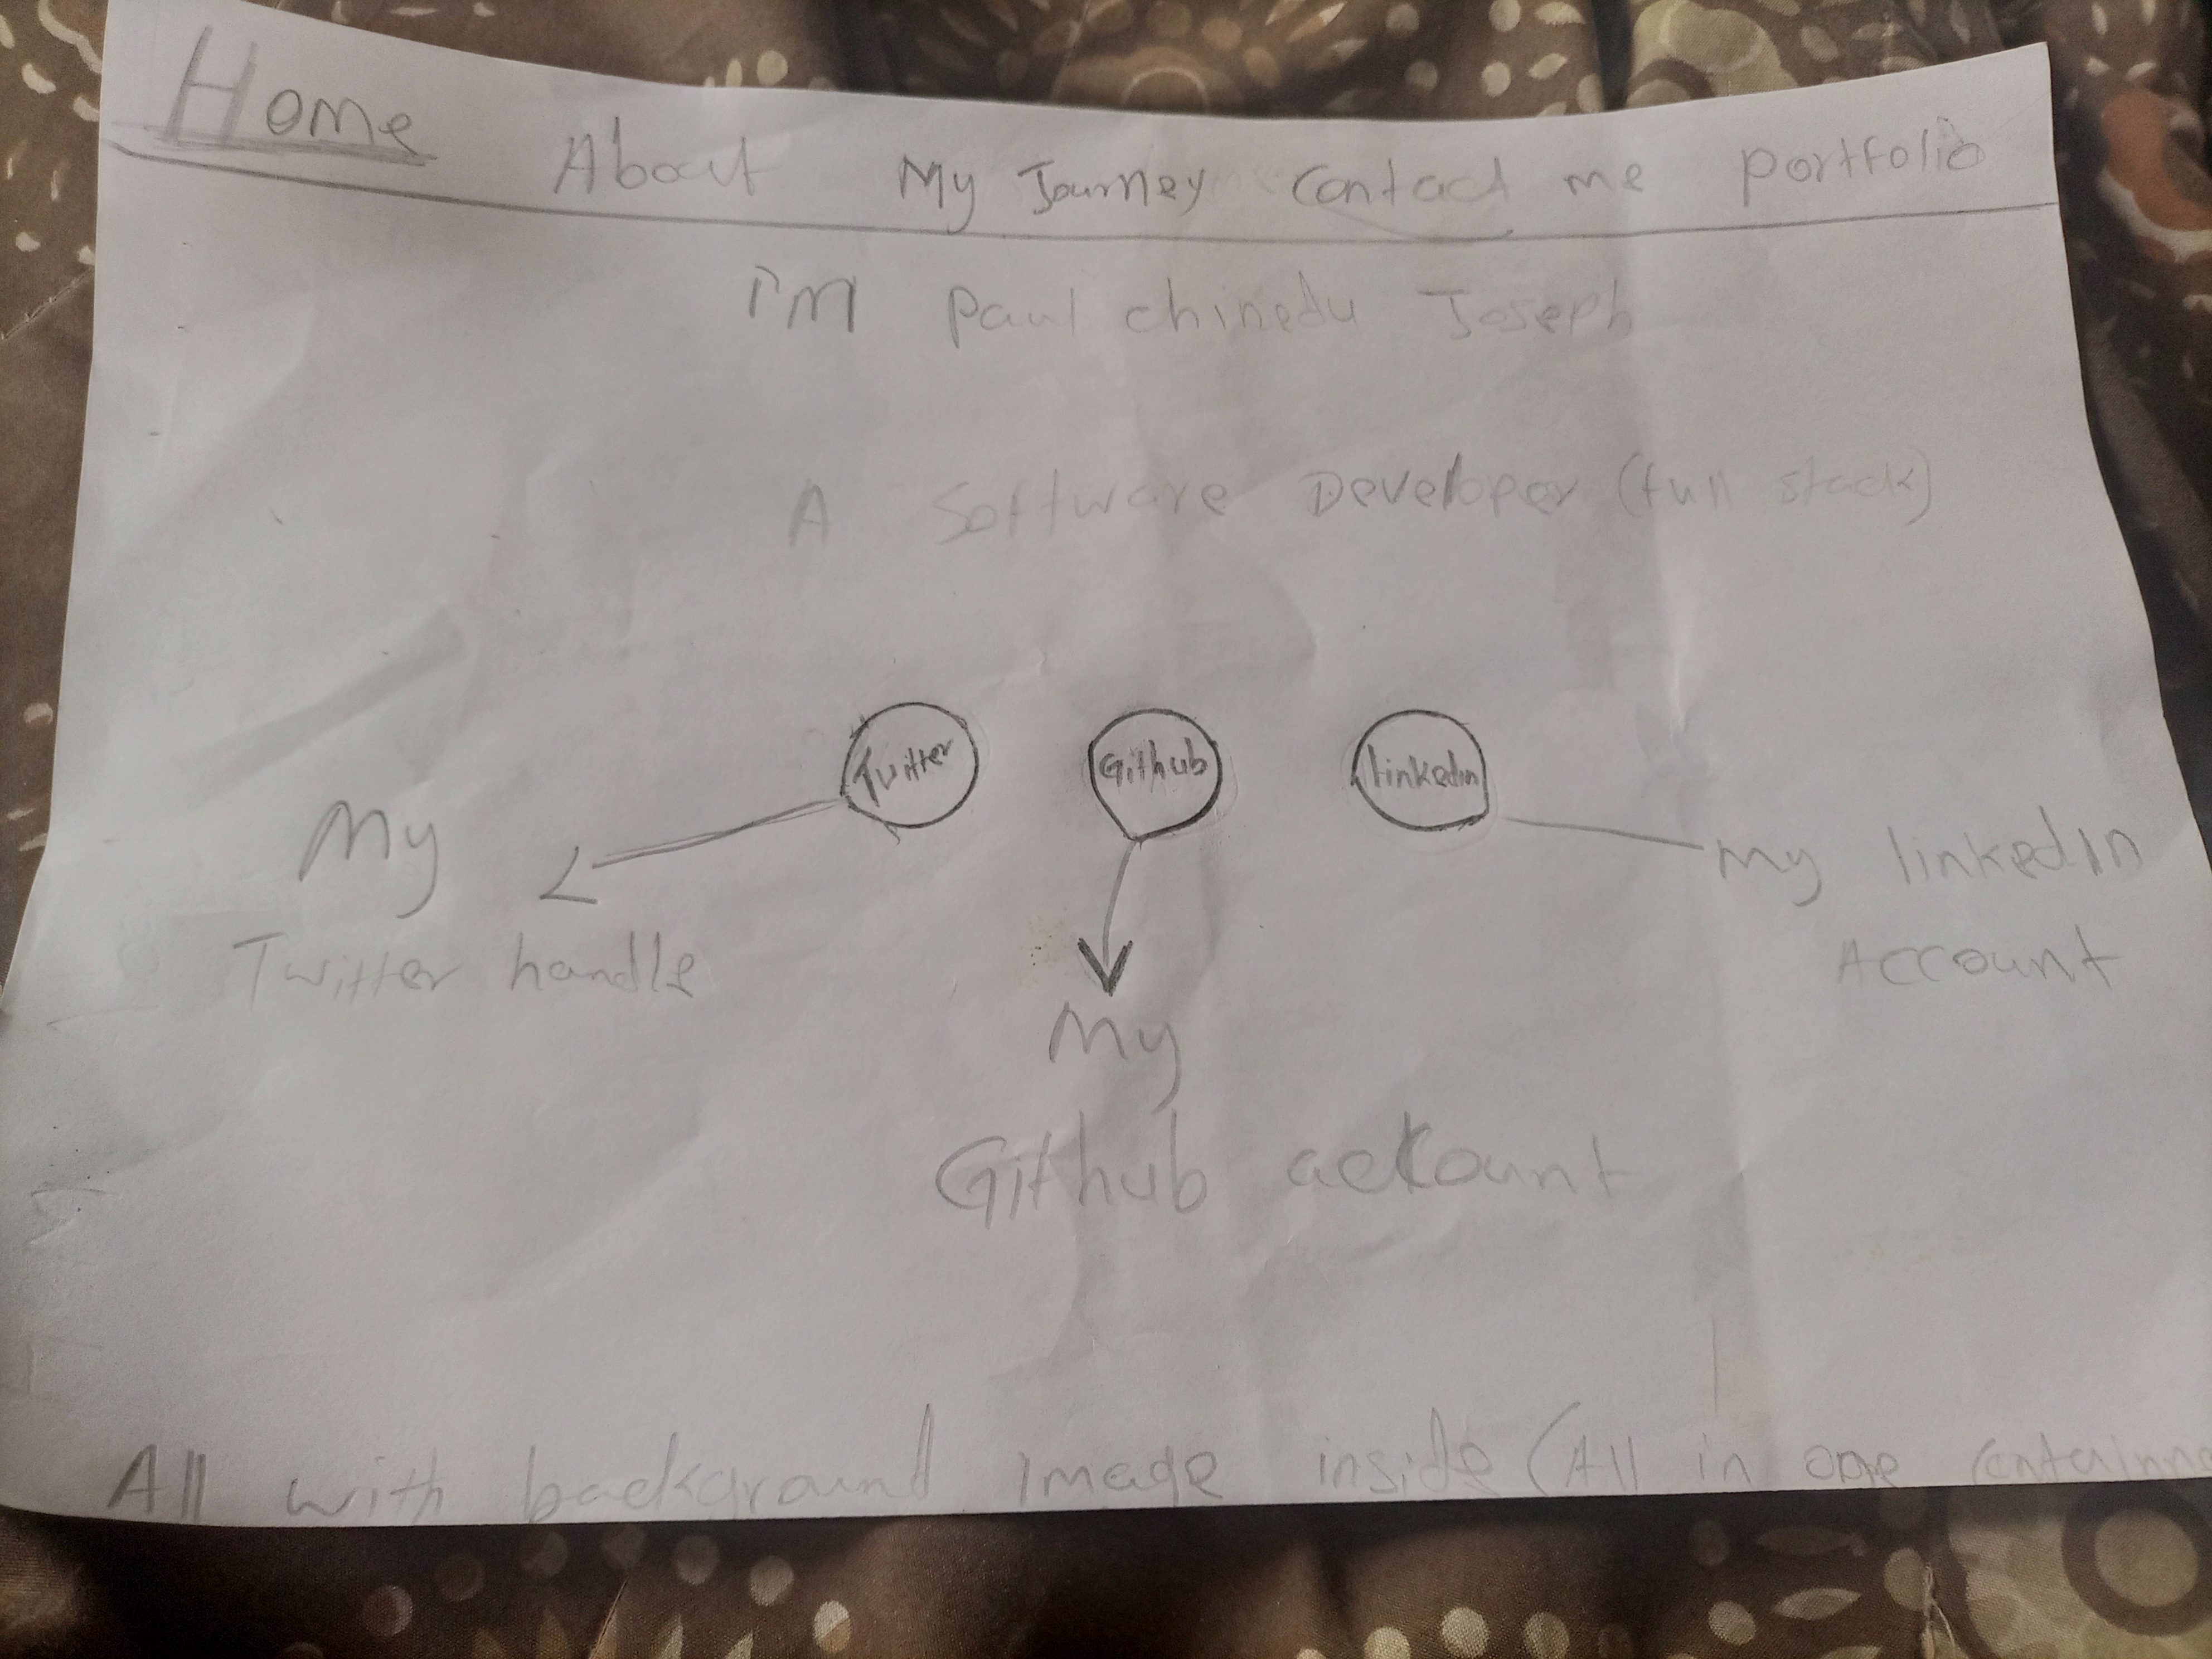 Home About My Journey contact me portfolio
I'm Paul chinedu Joseph
A Software Developer (full stack)
Twitter Github linkedin
My Twitter handle
My linkedin Account
My
Github account
All with background Image inside (All in one